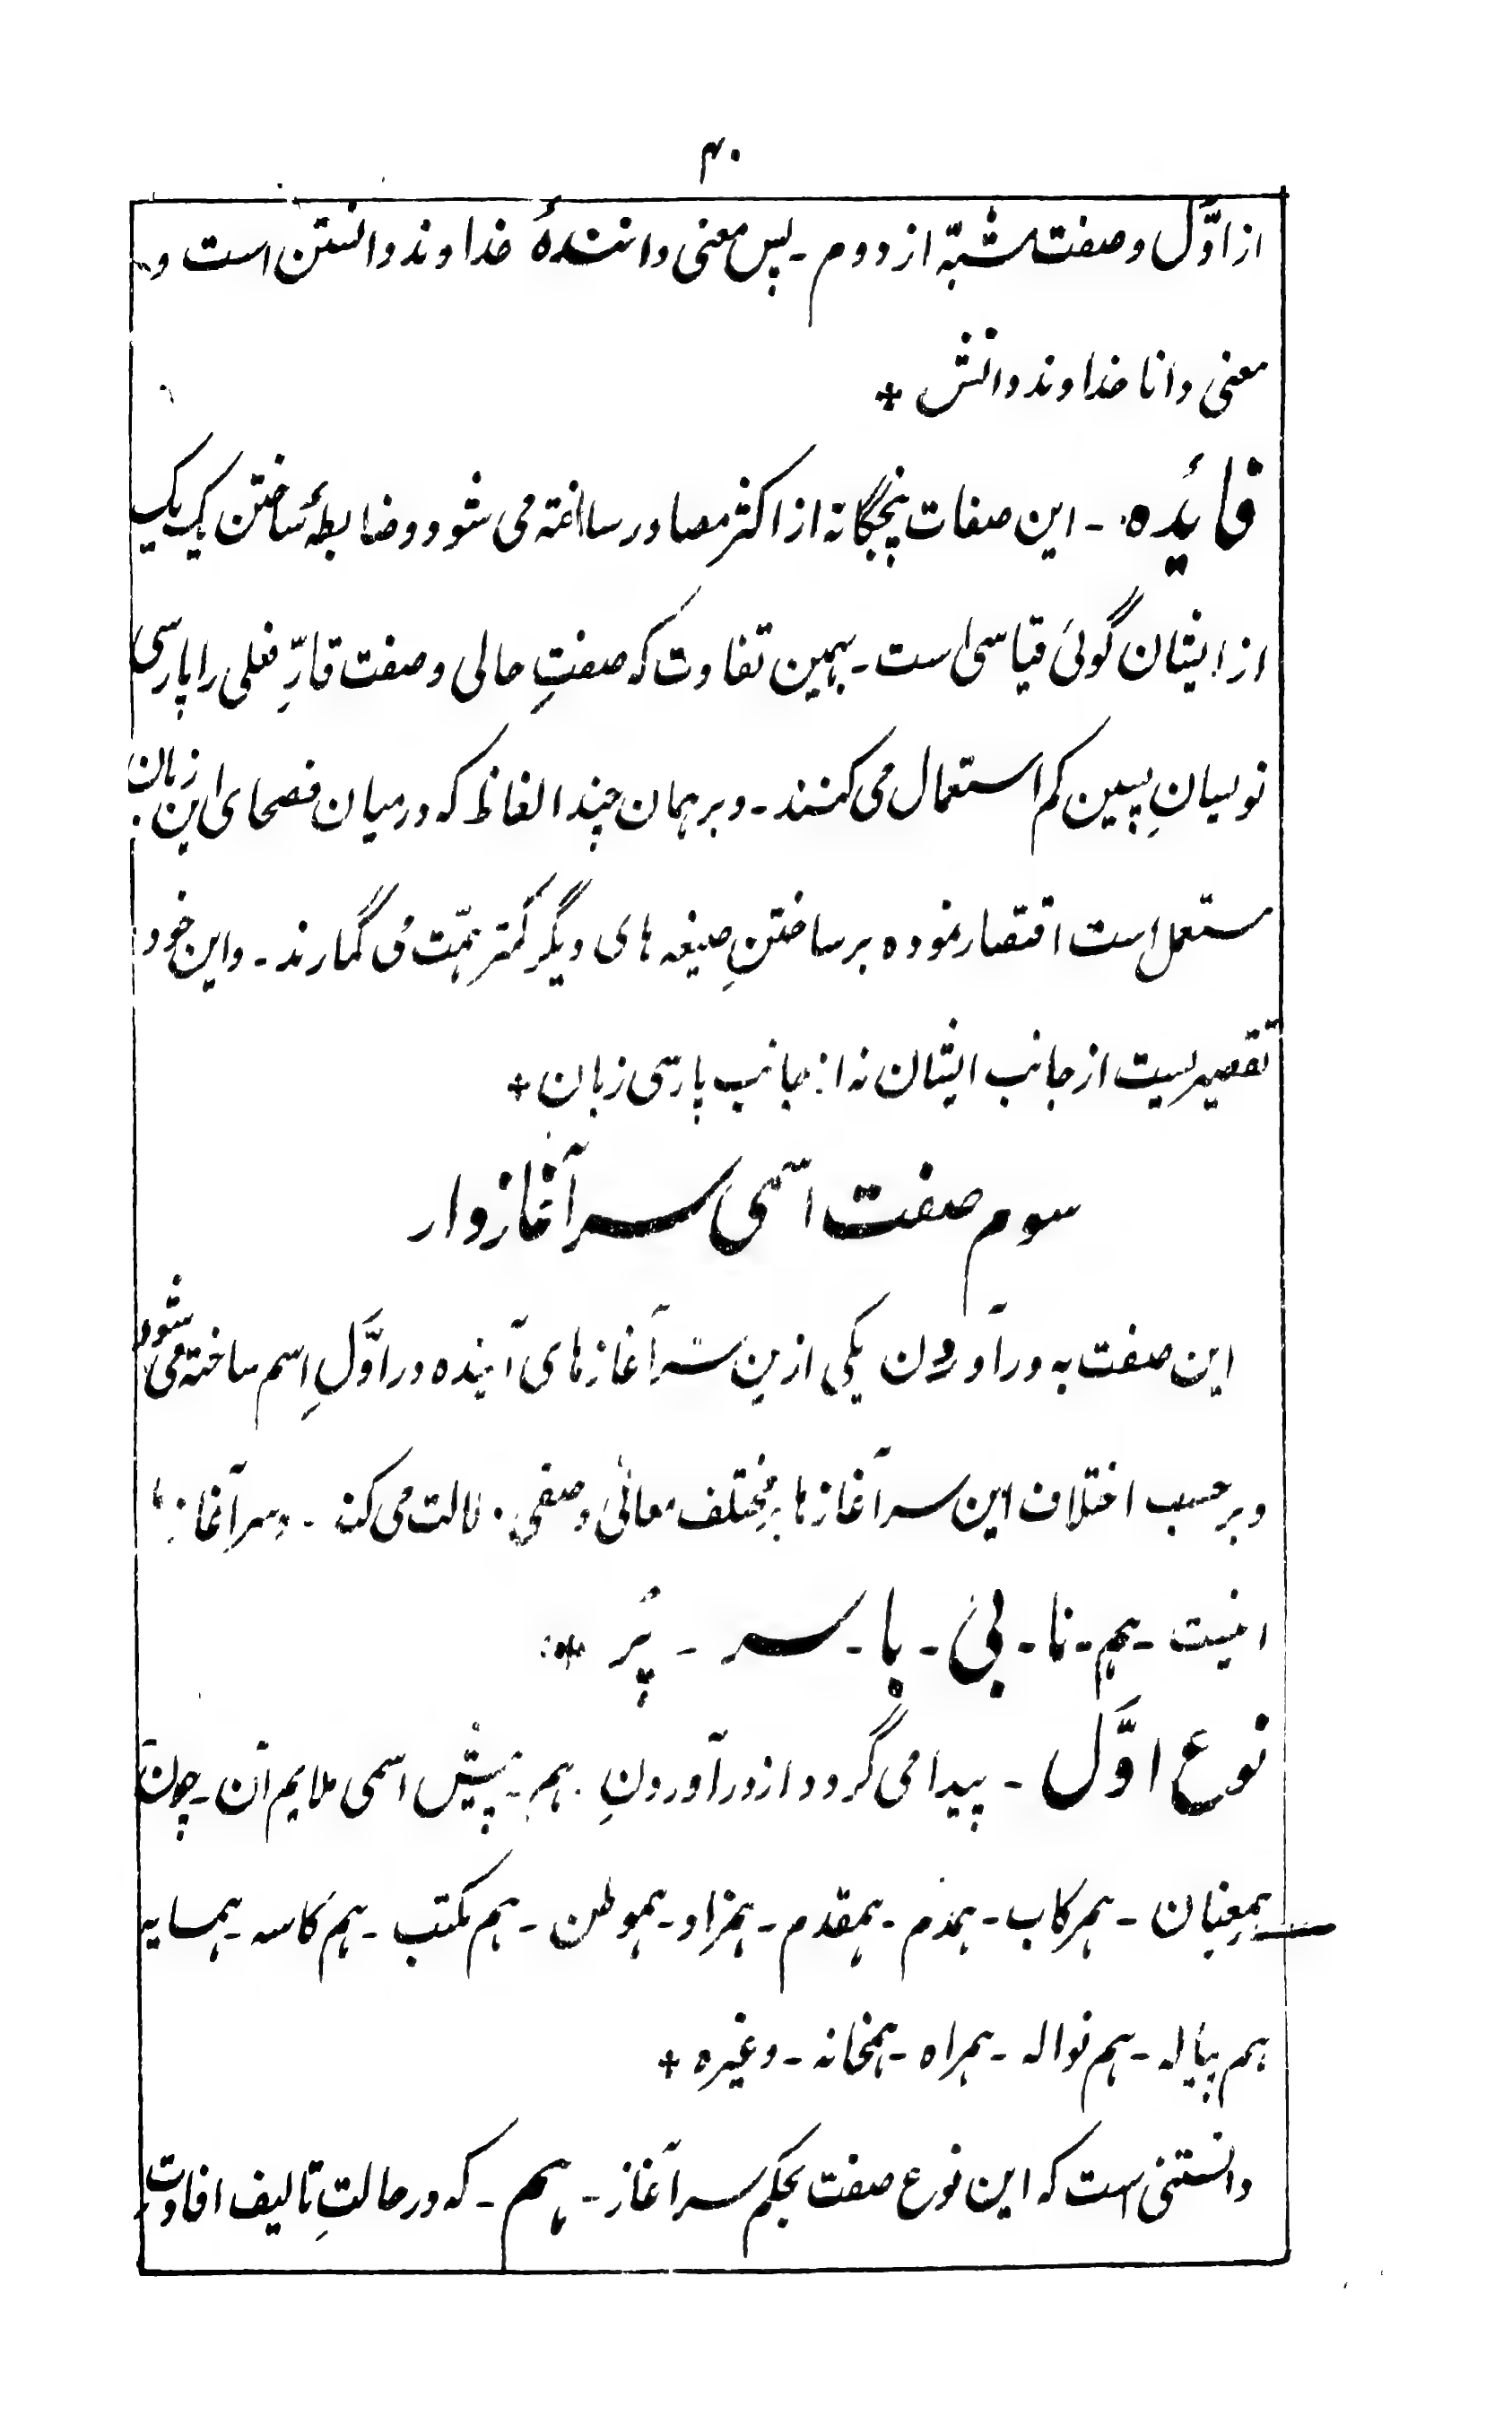 ۴۰
از اوّل و صفت مشبّه از دوم - پس معنی دانندهٔ خداوند دانستن است و
معنی دانا خداوند دانش +
فائده - این صفات پنجگانه از اکثر مصادر ساخته می شود و ضابطهٔ ساختن یک یک
از ایشان گوئی قیاسی است - بهمین تفاوت که صفتِ حالی و صفت قارِّ فعلی را پارسی
نویسانِ پسین کم استعمال می کنند - و بر همان چند الفاظ که درمیان فصحای این زبان
مستعمل است اقتصار نموده بر ساختنِ صیغه های دیگر کمتر همّت می گمارند - و این خود
تقصیریست از جانب ایشان نه از جانب پارسی زبان +
سوم صفت اسمی سرآغازدار
این صفت به درآوردن یکی ازین سرآغازهای آینده در اوّلِ اسم ساخته می شود
و بر حسب اختلاف این سرآغازها بر مختلف معانی وصفی دلالت می کند - و سرآغازها
اینست - هم - نا - بی - با - سر - پُر +
نوع اوّل - پیدا می گردد از درآوردنِ - هم - پیش اسمی ملایم آن - چون
همعنان - همرکاب - همدم - همقدم - همزاد - هموطن - هم مکتب - هم کاسه - همسایه
هم پیاله - هم نواله - همراه - همخانه - وغیره +
دانستنی است که این نوع صفت بحکم سرآغاز - هم - که در حالتِ تالیف افادت